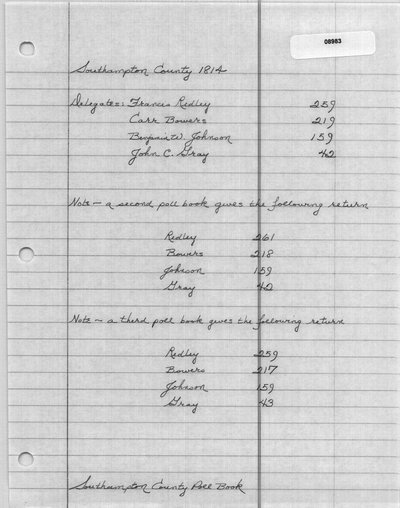 08983
Southampton County 1814
Delegates: Francis Ridley 259
Carr Bowers 219
Benjamin W. Johnson 159
John C. Gray 42
Note - a second poll book gives the following return
Ridley 261
Bowers 218
Johnson 159
Gray 42
Note - a third poll book gives the following return
Ridley 259
Bowers 217
Johnson 159
Gray 43
Southampton County Poll Book